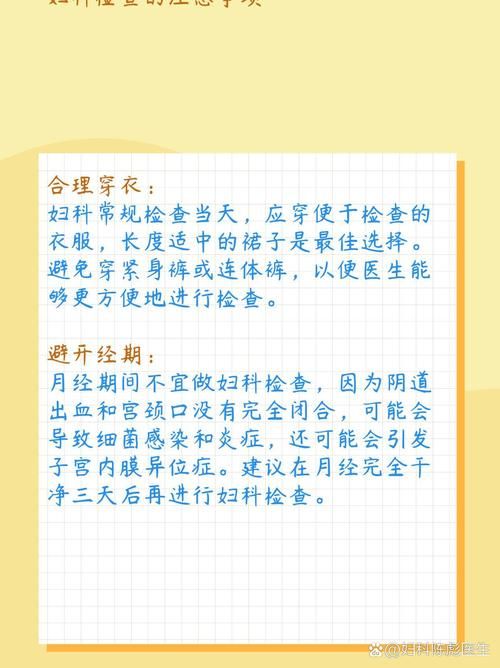 妇科检查的注意事项
合理穿衣：
妇科常规检查当天，应穿便于检查的
衣服，长度适中的裙子是最佳选择。
避免穿紧身裤或连体裤，以便医生能
够更方便地进行检查。
避开经期：
月经期间不宜做妇科检查，因为阴道
出血和宫颈口没有完全闭合，可能会
导致细菌感染和炎症，还可能会引发
子宫内膜异位症。建议在月经完全干
净三天后再进行妇科检查。
@妇科陈彪医生